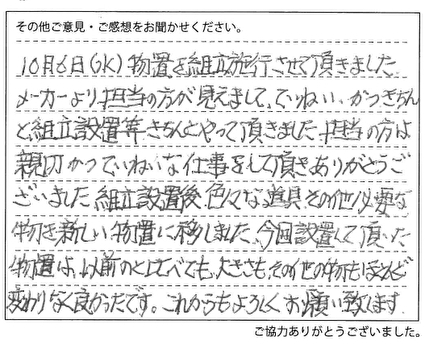 その他ご意見・ご感想をお聞かせください。
10月6日(GK)物置を組立施行させて頂きました
メーカーより担当の方が見えまして、ていねい、かつきちん
と組立設置等きちんとやって頂きました、担当の方は
親切かつていねいな仕事をして頂きありがとうご
ざいました 組立設置後、色々な道具その他必要な
物を新しい物置に移しました、今回設置して頂いた
物置は、以前のと比べても、大きさも、その他の物もほとんど
変わりなく良かったです。これからもよろしくお願い致します
ご協力ありがとうございました。